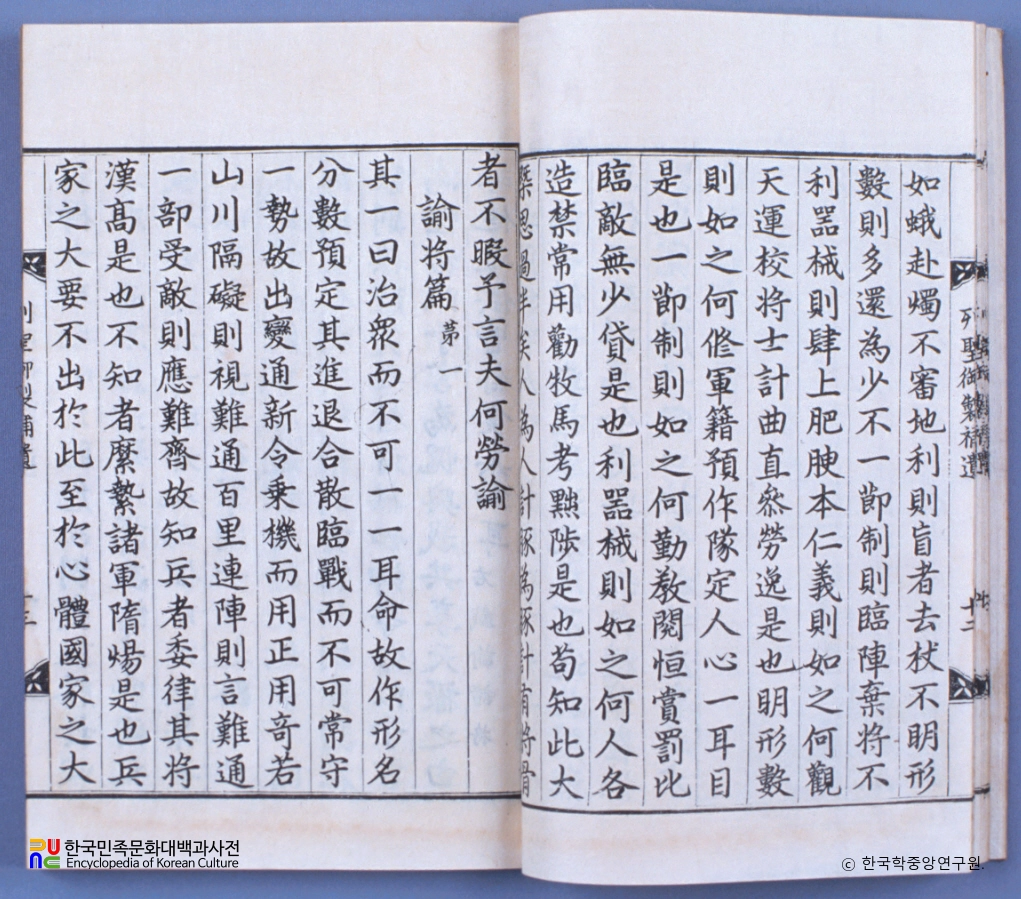 列聖御製補遺
十二
如蛾赴燭不審地利則盲者去杖不明形
數則多還為少不一節制則臨陣棄將不
利器械則肆上肥腴本仁義則如之何觀
天運校將士計曲直叅勞逸是也明形數
則如之何修軍籍預作隊定人心一耳目
是也一節制則如之何勤敎閱恒賞罰比
臨敵無少貸是也利器械則如之何人各
造禁常用勸牧馬考黜陟是也苟知此大
者不暇予言夫何勞論
諭將篇 第一
其一曰治衆而不可一一耳命故作形名
分數預定其進退合散臨戰而不可常守
一勢故出變通新令乗機而用正用奇若
山川隔礙則視難通百里連陣則言難通
一部受敵則應難齊故知兵者委律其將
漢髙是也不知者縻縶諸軍隋煬是也兵
家之大要不出於此至於心體國家之大
列聖御製補遺
十三
한국민족문화대백과사전
Encyclopedia of Korean Culture
© 한국학중앙연구원.